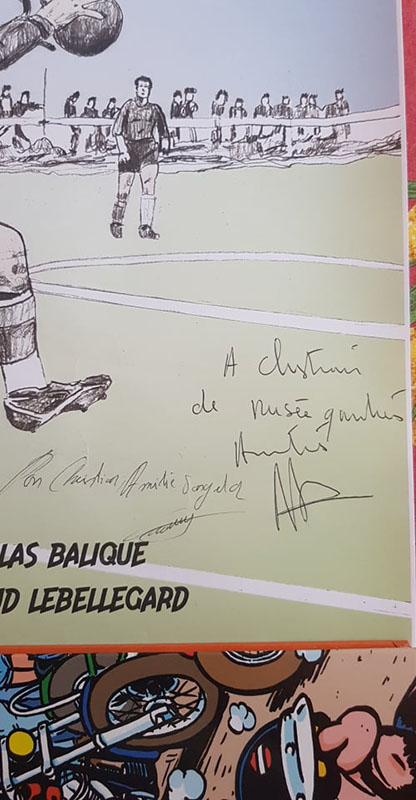 A Christian
de musée
Amitiés
Pour Christian Amitié
LAS BALIQUE
UD LEBELLEGARD